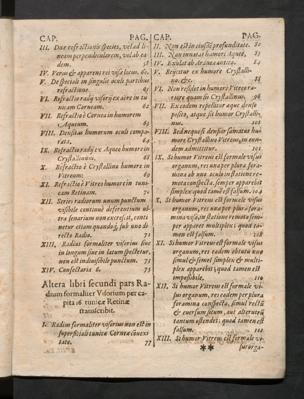 CAP. PAG.
III. Duæ refractionis species, vel ad lineam
perpendicularem, vel ab eadem. 58
IV. Verus & apparens rei visæ locus. 60
V. De speciali in singulis oculi partibus
refractione. 61
VI. Refractio radij visorij ex aëre in tunicam
Corneam. 62
VII. Refractio è Cornea in humorem
Aqueum. 63
VIII. Densitas humorum oculi comparata. 64
IX. Refractio radij ex Aqueo humore in
Crystallinum. 68
X. Refractio è Crystallino humore in
Vitreum. 69
XI. Refractio è Vitreo humore in tunicam
Retinam. 70
XII. Series radiorum unum punctum
visibile continuò deferentium ultra
senarium non excresit, continetur
etiam quandoq; sub una directa
Radio. 71
XIII. Radius formaliter visorius sine
in longum sive in latum spectetur,
non est indivisibile punctum. 73
XIV. Consectaria 6. 75
Altera libri secundi pars Radium
formaliter Visorium per capita
16 tunicæ Retinæ
transcribit.
I. Radius formaliter visorius non est in
superficiali tunicæ Corneæ convexitate. 77
CAP. PAG.
II. Non est in ejusdē profunditate. 80
III. Non innatat humori Aqueo. 81
IV. Exulat ab Aranea antica.
V. Rejicitur ex humore Crystallino,
&c.
VI. Non residet in humore Vitreo ratione
quam sit Crystallinus.
VII. Ex eodem repellitur æque densè
posito, atque sit humor Crystallinus.
VIII. Sed neque si densior statuitur humore
Crystallino Vitreus, in eundem
admittitur. 101
IX. Si humor Vitreus est formale visus
organum, res unaque per plura foramina
ab uno oculo in statione remota
conspecta, semper apparebit
simplex: quod tamen est falsum. 104
X. Si humor Vitreus est formale visus
organum, res una per plura foramina
visa, in statione remota semper
apparet multiplex: quod tamen
est falsum. 108
XI. Si humor Vitreus est formale visus
organum, res eadem obtutu uno
simul & semel simplex & multiplex
apparebit; quod tamen est
impossibile.
XII. Si humor Vitreus est formale visus
organum, res eadem per plura
foramina conspecta, simul rectū
& eversum situm, aut alterutrū
tantum ostendet: quod tamen est
falsum. 112
XIII. Si humor Vitreus est formale vi-
** sus orga-